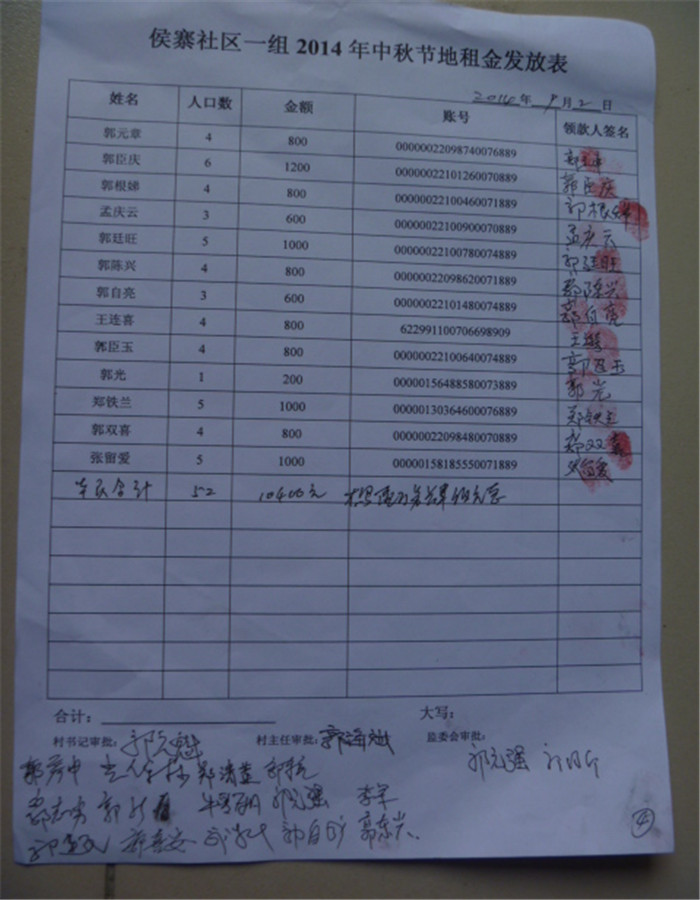 侯寨社区一组 2014 年中秋节地租金发放表
2014 年 9 月 2 日
姓名 人口数 金额 账号 领款人签名
郭元章 4 800 00000022098740076889
郭臣庆 6 1200 00000022101260070889 郭臣庆
郭根娣 4 800 00000022100460071889 郭根娣
孟庆云 3 600 00000022100900070889 孟庆云
郭廷旺 5 1000 00000022100780074889 郭廷旺
郭陈兴 4 800 00000022098620071889 郭陈兴
郭自亮 3 600 00000022101480074889 郭自亮
王连喜 4 800 622991100706698909
郭臣玉 4 800 00000022100640074889 郭臣玉
郭光 1 200 00000156488580073889 郭光
郑铁兰 5 1000 00000130364600076889 郑铁兰
郭双喜 4 800 00000022098480070889 郭双喜
张留爱 5 1000 00000158185550071889 张留爱
本页合计 52 10400元
合计： 大写：
村书记审批： 村主任审批： 监委会审批：
郭克强
郭克强 李军
郭自旷 郭东兴
④